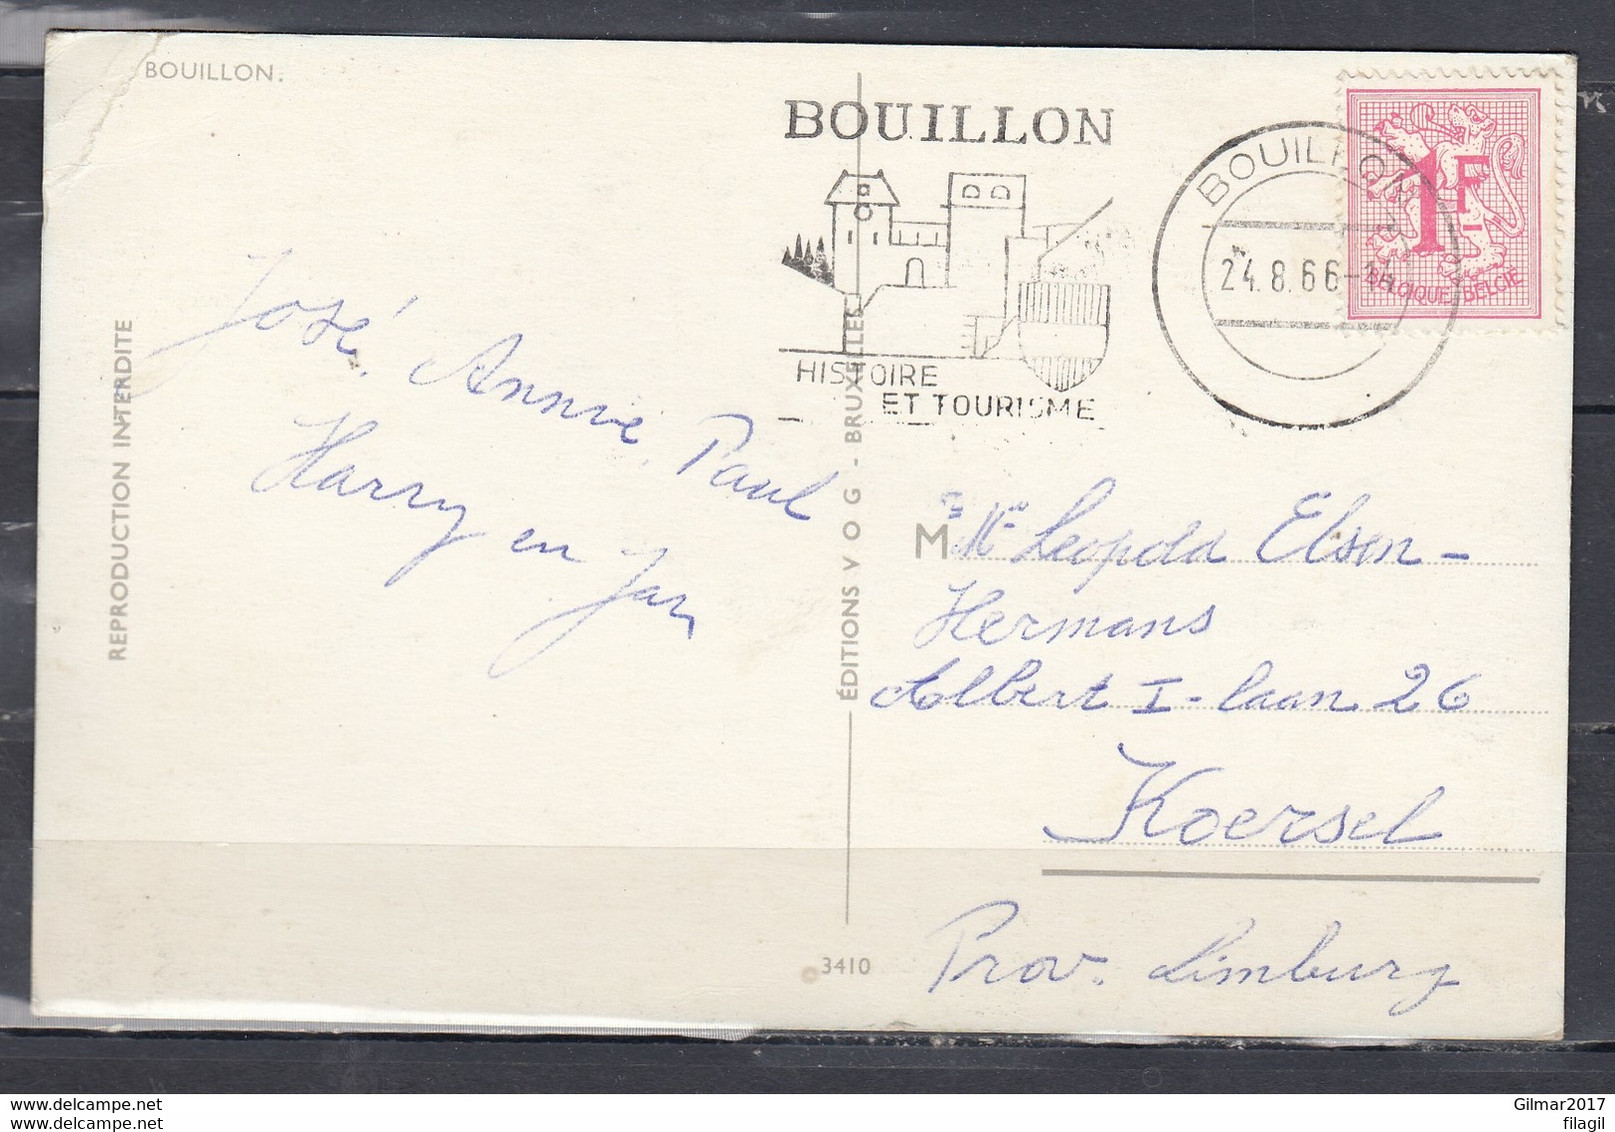 BOUILLON.
BOUILLON
HISTOIRE
ET TOURISME
BOUILLON
24.8.66-
1F
BELGIQUE BELGIE
REPRODUCTION INTERDITE
José, Annie, Paul
Harry en Jan
ÉDITIONS V O G - BRUXELLES
3410
M
Leopold Elsen-
Hermans
Albert I-laan 26
Koersel
Prov. Limburg
www.delcampe.net
Gilmar2017
filagil